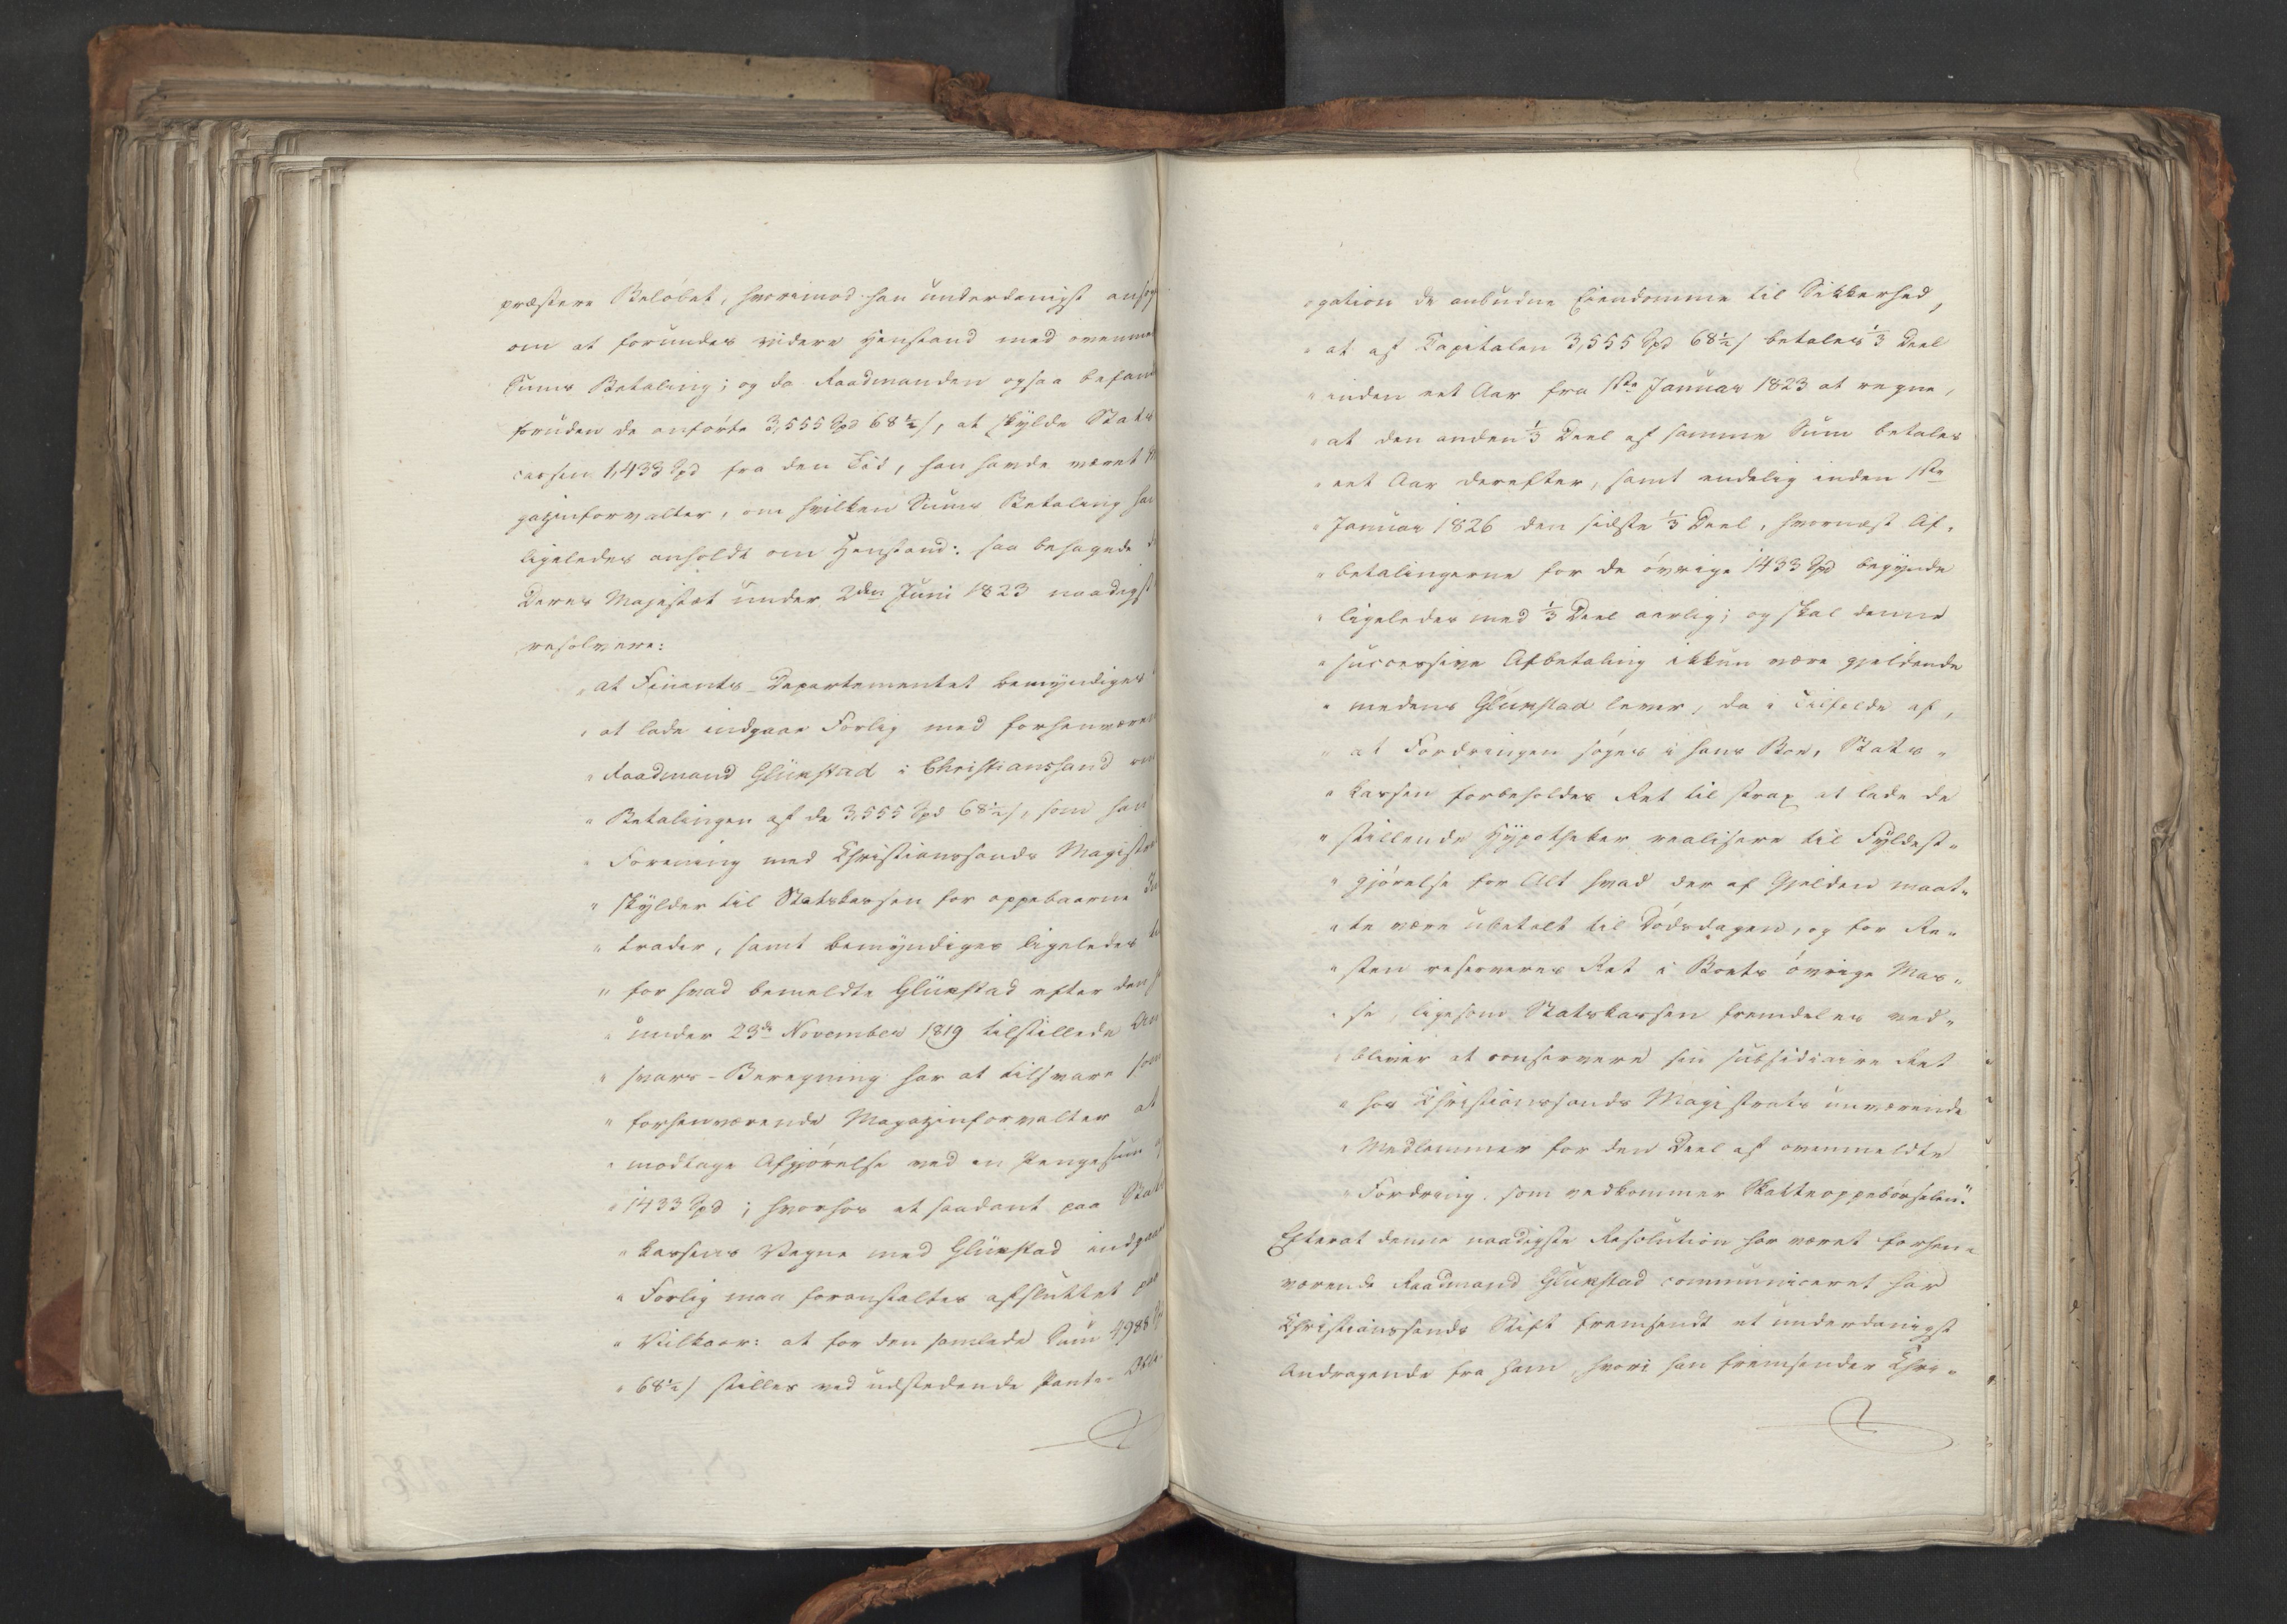 præstere Beløbet, hvorimod han underdanigst ansøg
om at forundes videre Henstand med ovenmel
Sums Betaling; og da Raadmanden ogsaa befand
foruden de anførte 3,555 Spd 68½ s, at skylde Stats
cassen 1,433 Spd fra den Tid, han havde været
gazinforvalter, om hvilken Sums Betaling han
ligeledes anholdt om Henstand: saa behagede
Deres Majestæt under 2den Juni 1823 naadigst
resolvere:
„ at Finants-Departementet bemyndiges
„ at lade indgaae Forlig med forhenværen
„ Raadmand Glückstad i Christianssand om
„ Betalingen af de 3,555 Spd 68½ s, som han
„ Forening med Christianssands Magistrat
„ skylder til Statskassen for oppebaarne In
„ trader, samt bemyndiges ligeledes til
„ for hvad bemeldte Glückstad efter den
„ under 23de November 1819 tilstillede An
„ svars-Beregning har at tilsvare som
„ forhenværende Magazinforvalter at
„ modtage Afgjørelse ved en Pengesum af
„ 1433 Spd; hvorhos et saadant paa Stats
„ kassens Vegne med Glückstad indgaaet
„ Forlig maa foranstaltes afsluttet paa
„ Vilkaar: at for den samlede Sum 4988 Sp
„ 68½ s stilles ved udstedende Pante-Obli
gation de anbudne Eiendomme til Sikkerhed,
„ at af Capitalen 3,555 Spd 68½ s betales ⅓ Deel
„ inden eet Aar fra 1ste Januar 1823 at regne,
„ at den anden ⅓ Deel af samme Sum betales
„ eet Aar derefter, samt endelig inden 1ste
„ Januar 1826 den sidste ⅓ Deel, hvornæst Af„
„ betalingerne for de øvrige 1433 Spd begynde
„ ligeledes med ⅓ Deel aarlig; og skal denne
„ successive Afbetaling ikkun være gjeldende
„ medens Glückstad lever, da i Tilfelde af,
„ at Fordringen søges i hans Boe, Stats„
„ kassen forbeholdes Ret til strax at lade de
„ stillende Hypotheker realisere til Fyldest„
„ gjørelse for Alt hvad der af Gjelden maat„
„ te være ubetalt til Dødsdagen, og for Re„
„ sten reserveres Ret i Boets øvrige Mas„
„ se, ligesom Statskassen fremdeles ved„
„ bliver at conservere sin subsidiaire Ret
„ hos Christianssands Magistrats nuværende
„ Medlemmer for den Deel af ovenmeldte
„ Fordring, som vedkommer Skatteoppebørselen."
Efterat denne naadigste Resolution har været forhen„
værende Raadmand Glückstad communiceret har
Christianssands Stift fremsendt et underdanigst
Andragende fra ham, hvori han fremsender Chri„